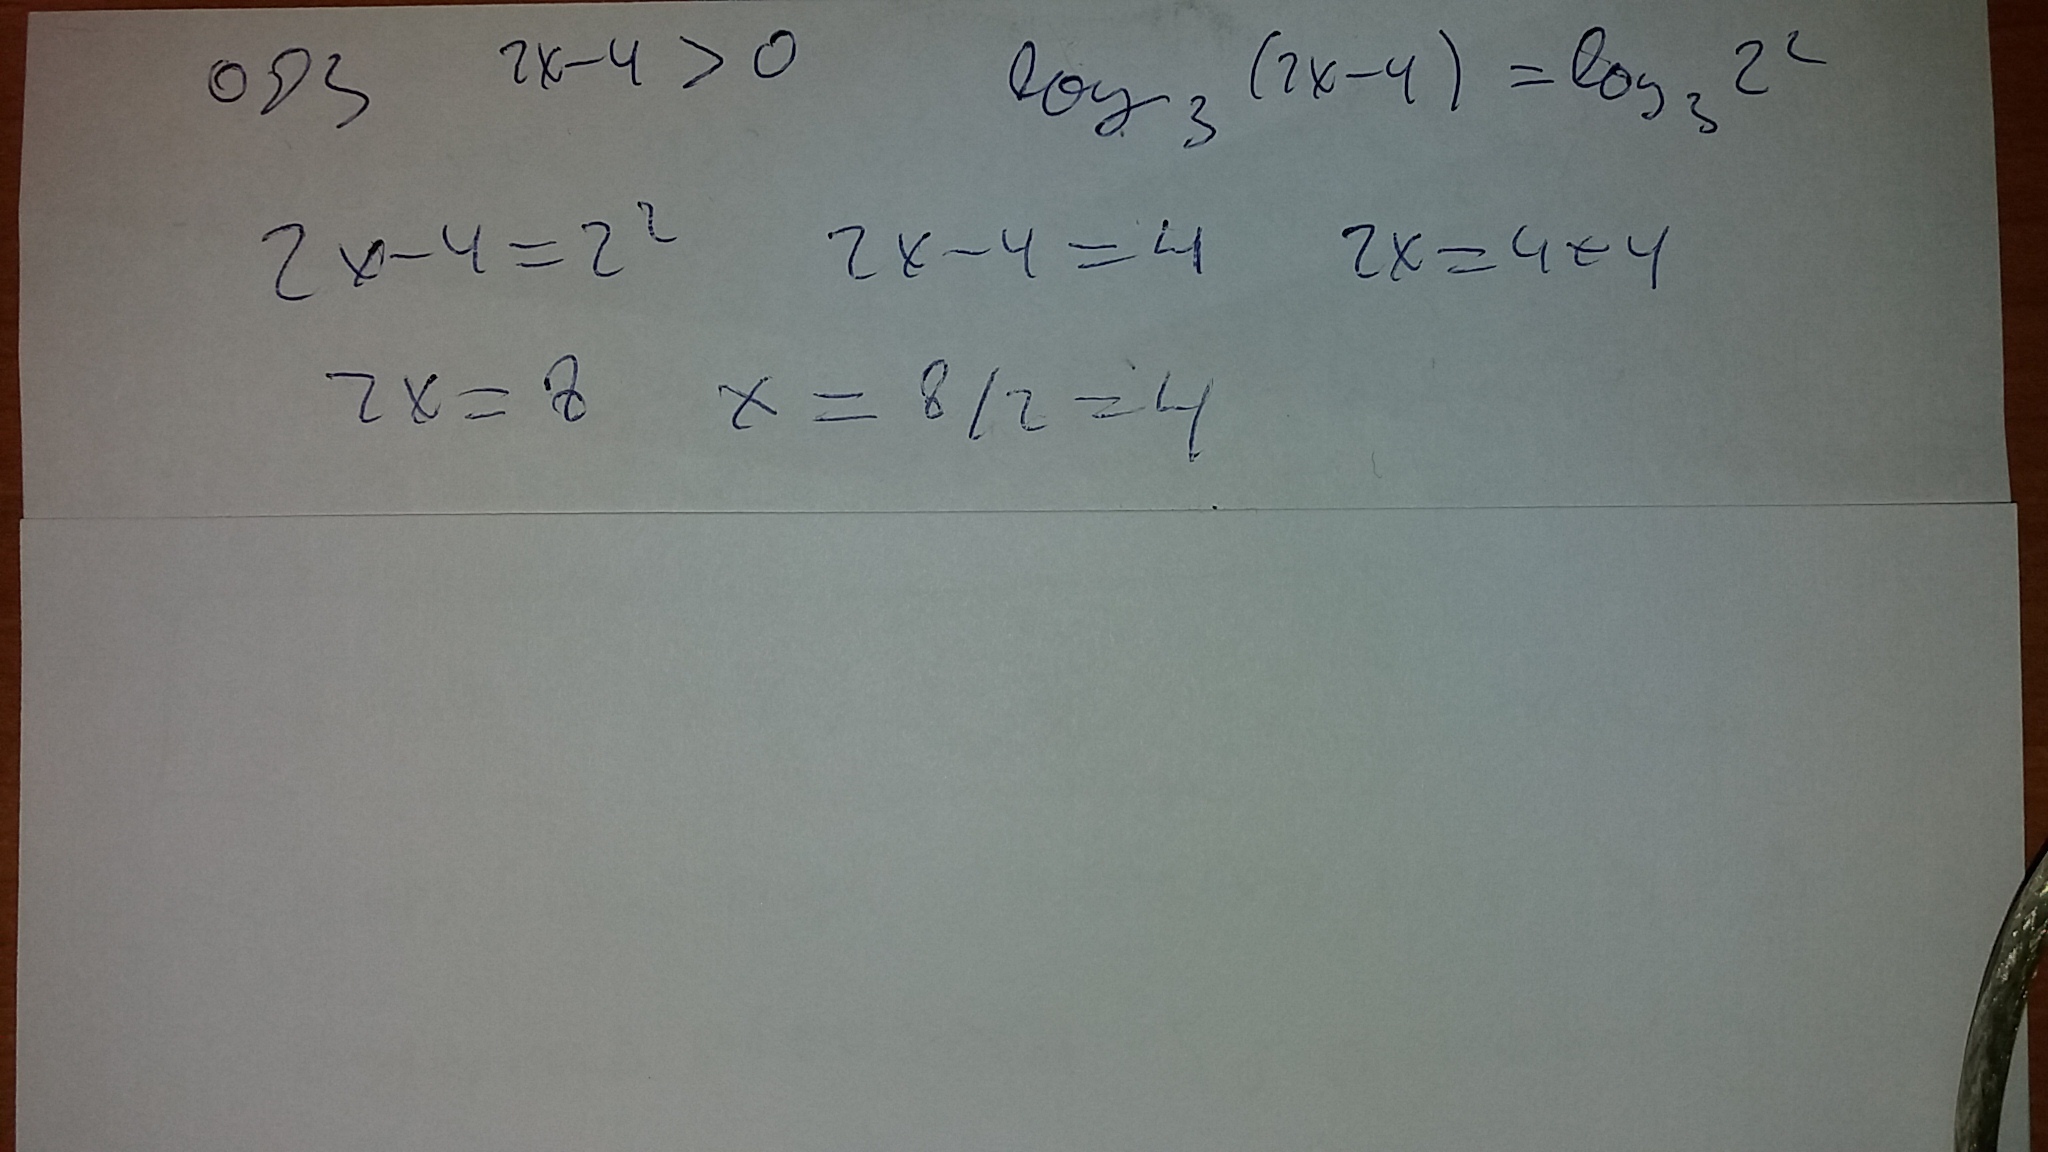 ОДЗ 2x-4>0 log₃(2x-4)=log₃2²
2x-4=2² 2x-4=4 2x=4+4
2x=8 x=8/2=4